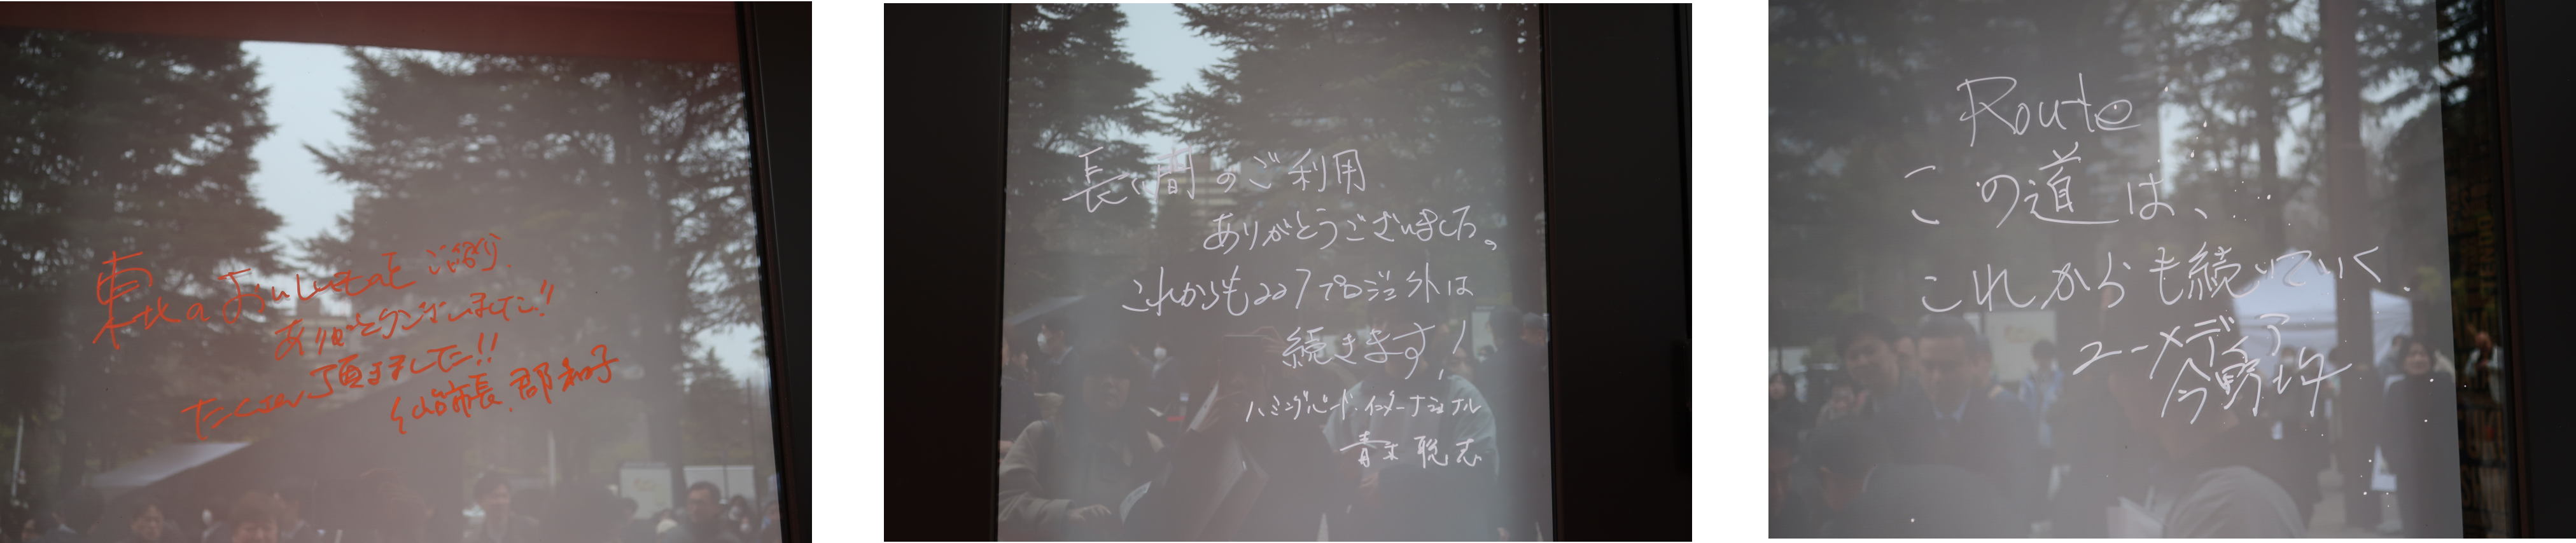 東北のおいしいものをご紹介
ありがとうございました!!
たくさん頂きました!!
仙台市長 郡和子
長い間のご利用
ありがとうございました。
これからも227プロジェクトは
続きます!
ハミングバード・インターナショナル
青木聡志
Route
この道は、
これからも続いていく.
ユーメディア
今野